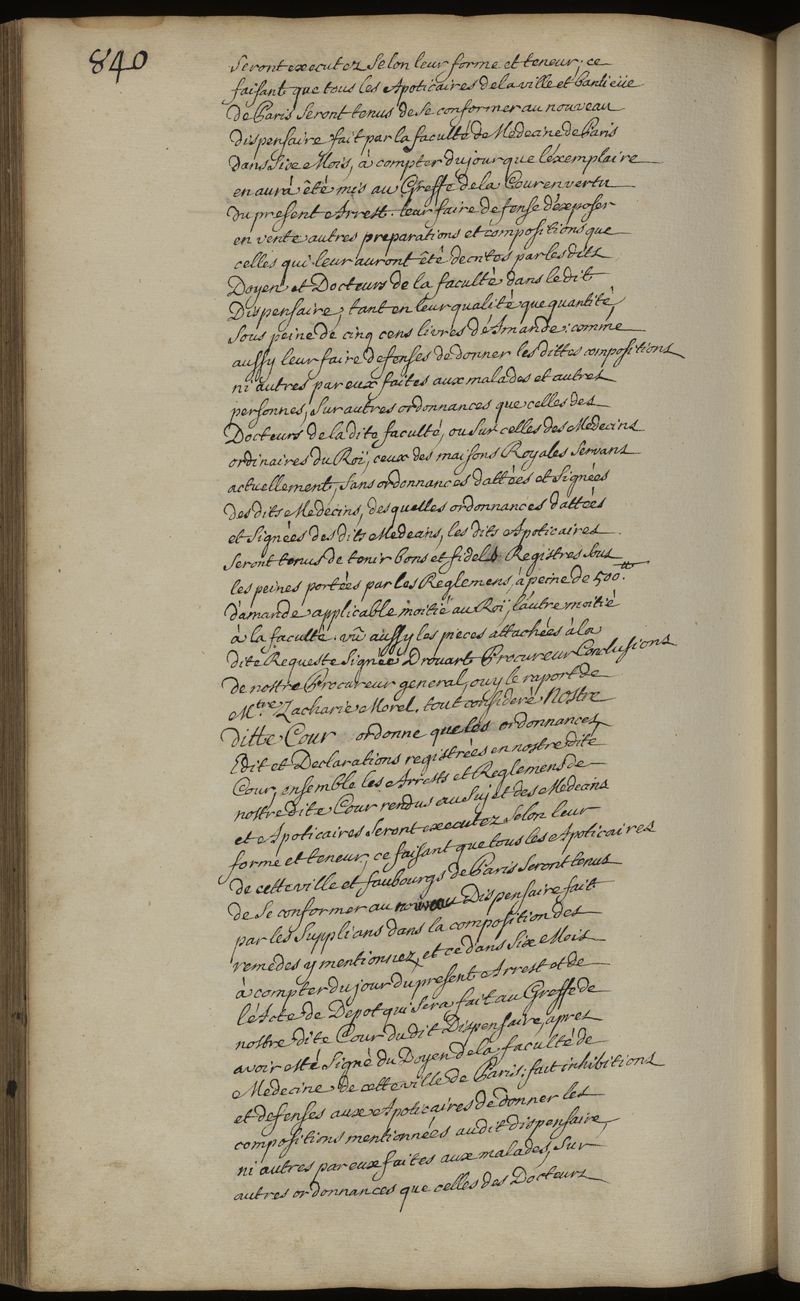 840
seront executez selon leur forme et teneur; ce
faisant que tous les Apoticaires de la ville et banlieüe
de Paris seront tenus de se conformer au nouveau
dispensaire fait par la faculté de Medecine de Paris
dans Six Mois, à compter du jour que léxemplaire
en aura été mis au Greffe de la Cour en vertu
du present Arrest. leur faire defense d'exposer
en vente autres preparations et compositions que
celles qui leur auront été decrites par les dits
Doyen et Docteurs de la faculté dans le dit
Dispensaire, tant en leur qualité que quantité,
sous peine de cinq cens livres d'Amande: comme
aussy leur faire defenses de donner les dittes compositions
ni autres par eux faites aux malades et autres
personnes, sur autres ordonnances que celles des
Docteurs de la dite faculté, ou sur celles des Medecins
ordinaires du Roï, ceux des maisons Royales servans
actuellement, sans ordonnances dattées et signées
des dits Medecins, des quelles ordonnances dattées
et signées des dits Medecins, les dits Apoticaires
seront tenus de tenir bons et fidels Registres sous
les peines portées par les Reglemens, à peine de 500.tt
d'amande applicable moitié au Roï, l'autre moitié
à la faculté. vû aussy les pieces attachées à la
dite Requeste signée Drouart Procureur Conclusions
de nostre Procureur general, ouy le raport de
M.tre Zacharie Morel. tout consideré Nostre
ditte Cour ordonne que les ordonnances
Edit et Declarations registrées en nostre dite
Cour, ensemble les Arrests et Reglemens de
nostre dite Cour rendus au sujet des Medecins
et Apoticaires seront executez selon leur
forme et teneur; ce faisant que tous les Apoticaires
de cette ville et faubourgs de Paris seront tenus
de se conformer au nouveau Dispensaire fait
par les Supplians dans la composition des
remedes y mentionnez, et ce dans Six Mois
à compter du jour du present Arrest et de
l'Acte de Depot qui sera fait au Greffe de
nostre dite Cour du dit Dispensaire, apres
avoir esté signé du Doyen de la faculté de
Medecine de cette ville de Paris; fait inhibitions
et defenses aux Apoticaires de donner les
compositions mentionnées audit dispensaire,
ni autres par eux faites aux malades, sur
autres ordonnances que celles des Docteurs